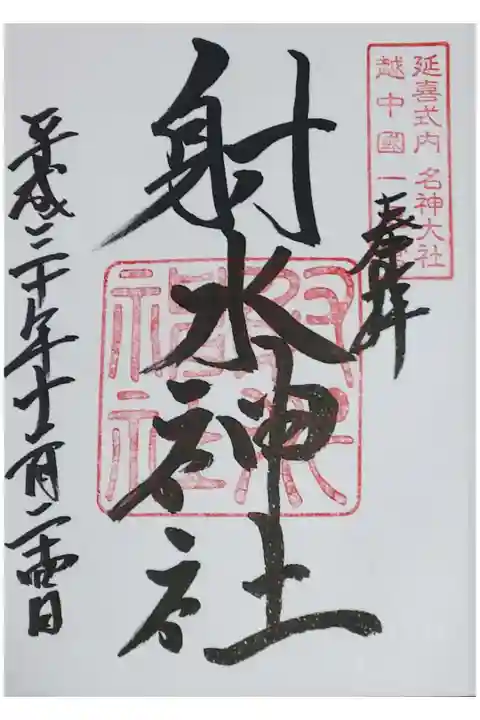 延喜式内 名神大社
越中國一
奉拝
射水神社
射水神社
平成三十年十二月二十四日